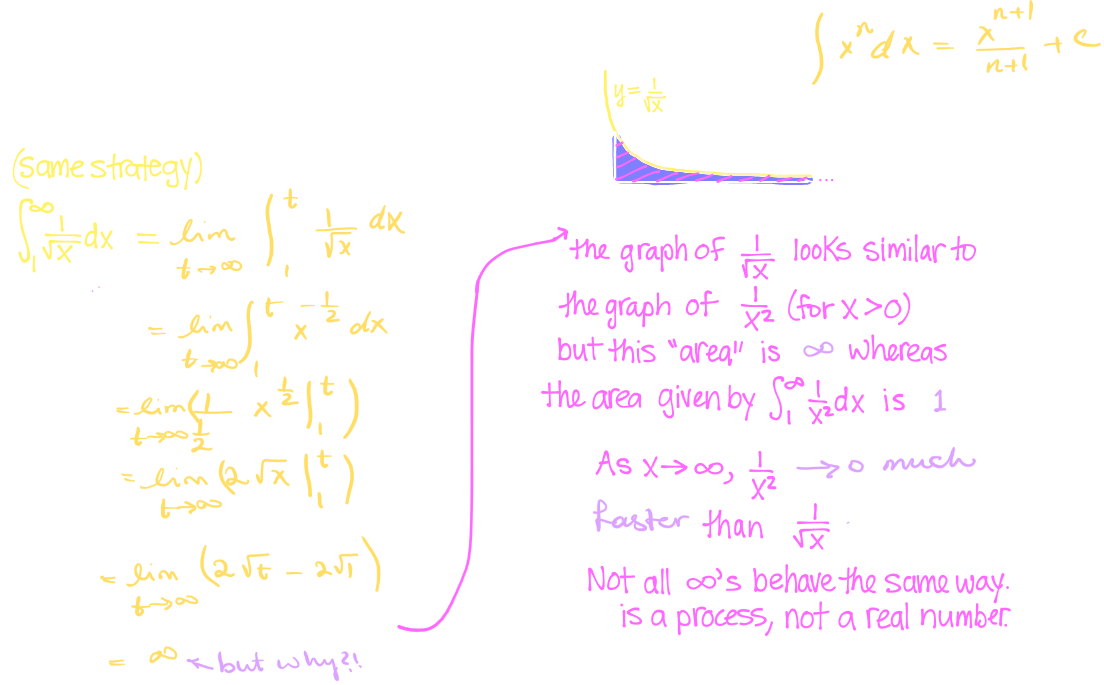 ∫ xⁿ dx = xⁿ⁺¹/(n+1) + c
y = 1/√x
(same strategy)
∫₁^∞ 1/√x dx = lim t→∞ ∫₁^t 1/√x dx
= lim t→∞ ∫₁^t x^(-1/2) dx
= lim t→∞ (1/(1/2) x^(1/2) |₁^t)
= lim t→∞ (2√x |₁^t)
= lim t→∞ (2√t − 2√1)
= ∞ ← but why?!
...
the graph of 1/√x looks similar to
the graph of 1/x² (for x>0)
but this "area" is ∞ whereas
the area given by ∫₁^∞ 1/x² dx is 1
As x→∞, 1/x² → 0 much
faster than 1/√x
Not all ∞'s behave the same way.
is a process, not a real number.